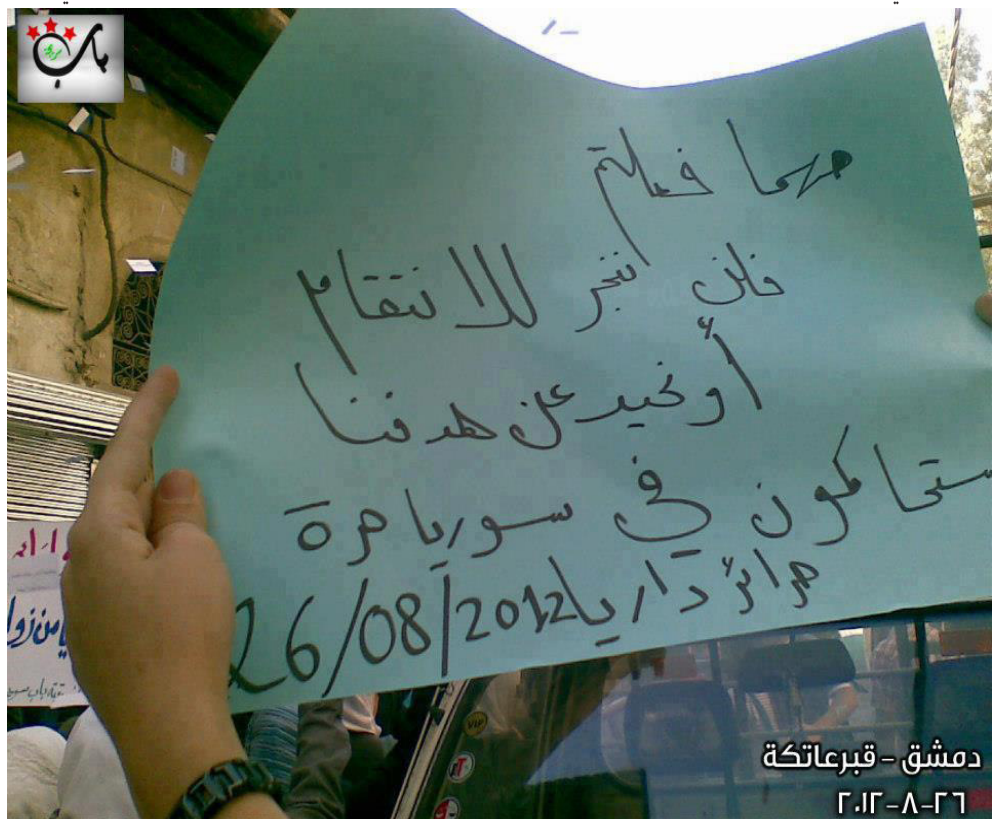 مهما فعلتم
فلن ننجر للانتقام
أو نحيد عن هدفنا
ستحاكمون في سوريا حرة
حرائر داريا 26/08/2012
دمشق - قبرعاتكة
٢٦-٨-٢٠١٢